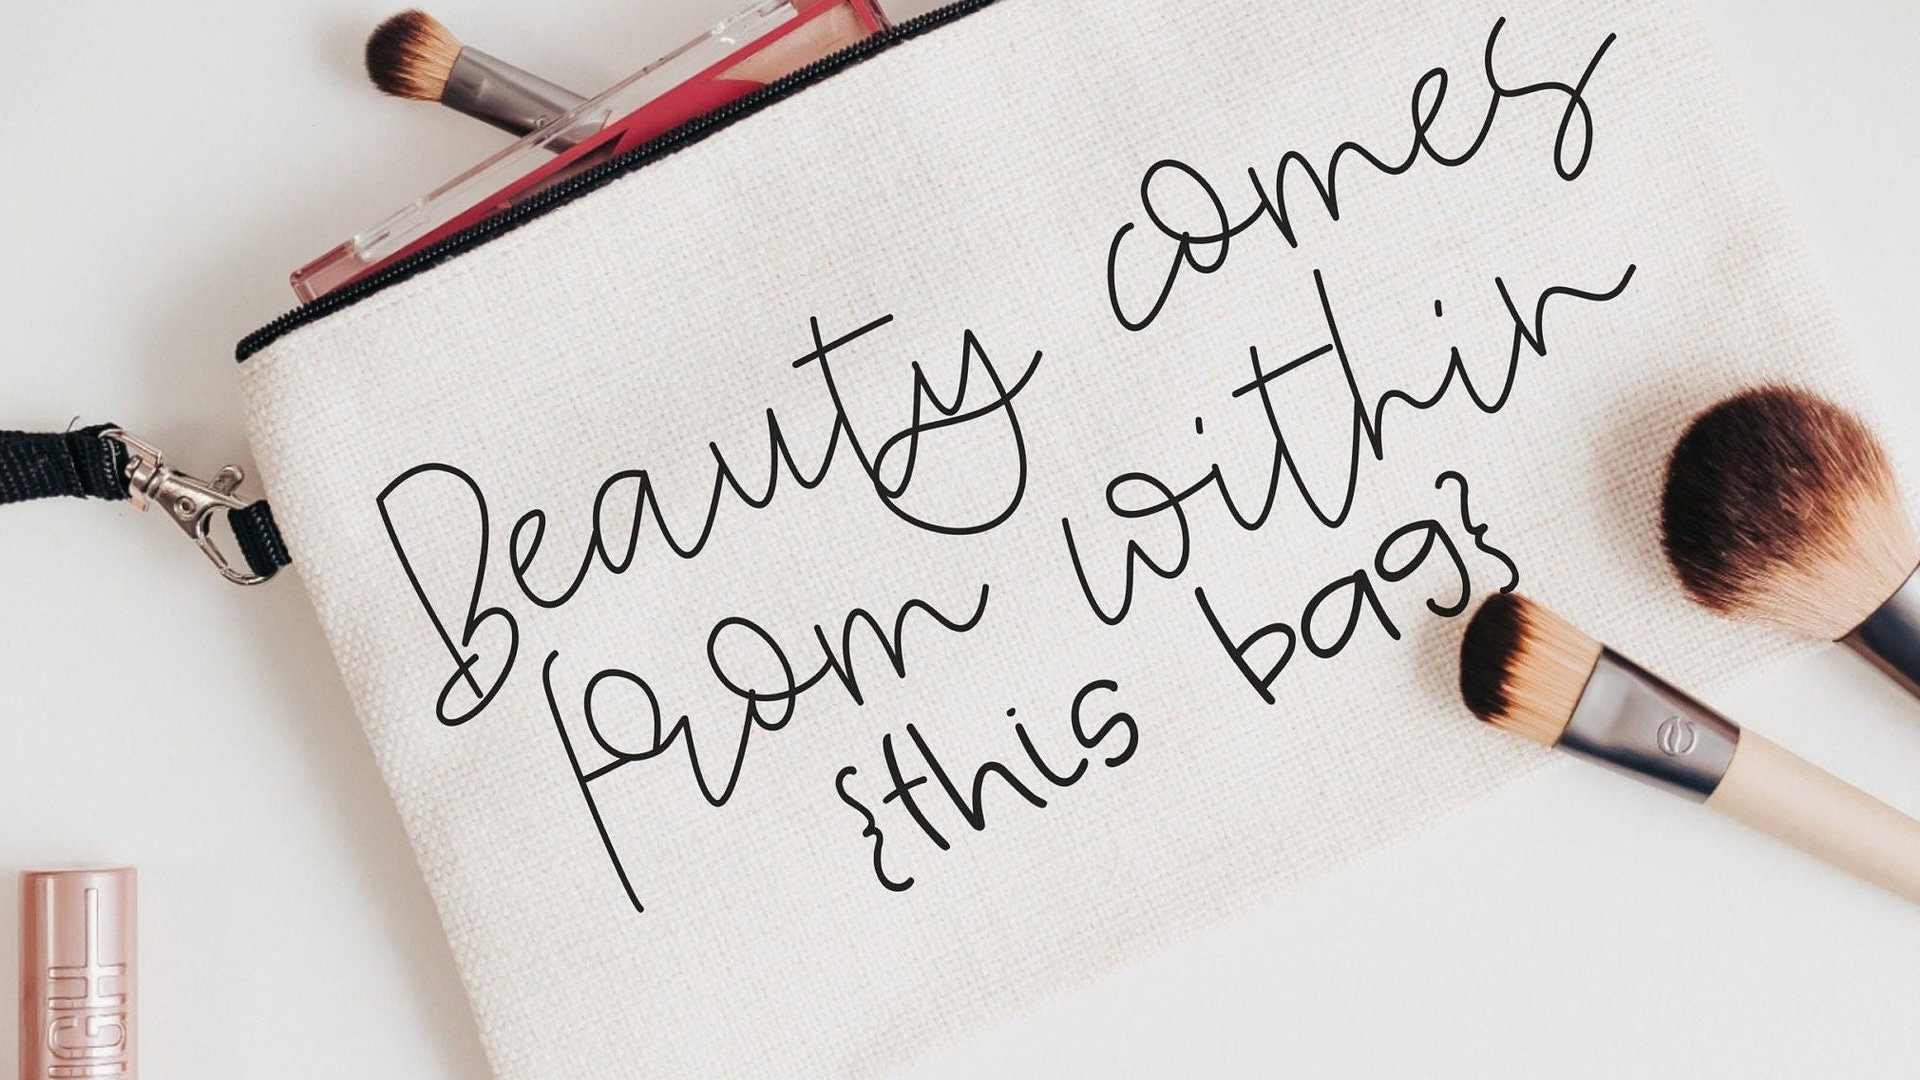 Beauty comes
from within
{this bag}
IGH